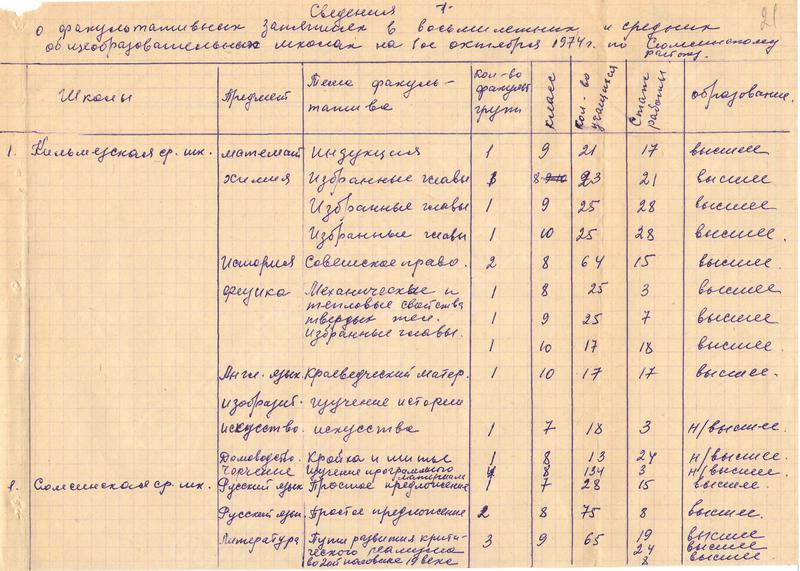 21
Сведения
о факультативных занятиях в восьмилетних и средних
общеобразовательных школах на 1ое октября 1974г. по Сюмсинскому
району.
Школы Предмет Тема факуль-татива Кол-во факульт. групп класс Кол-во учащихся Стаж работы образование.
1. Кильмезская ср. шк. математ индукция 1 9 21 17 высшее
химия Избранные главы 1 8 23 21 высшее
Избранные главы 1 9 25 28 высшее.
Избранные главы 1 10 25 28 высшее.
История Советское право. 2 8 64 15 высшее.
Физика Механические и 1 8 25 3 высшее
тепловые свойства
твердых тел. 1 9 25 7 высшее
Избранные главы.
1 10 17 18 высшее.
Англ. язык. Краеведческий матер. 1 10 17 17 высшее.
изобразит. изучение истории
искусство. искусства 1 7 18 3 н/высшее.
Домоводство. Кройка и шитье 1 8 13 24 н/высшее.
Черчение Изучение программного материала 4 8 134 3 н/высшее.
2. Сюмсинская ср. шк. Русский язык Простое предложение 1 7 28 15 высшее.
Русский язы. Простое предложение 2 8 75 8 высшее.
Литература Пути развития крити- 3 9 65 19 высшее
ческого реализма 24 высшее
во 2ой половине 19 века 8 высшее.